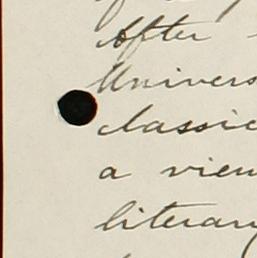 After
Univers
classic
a view
literary